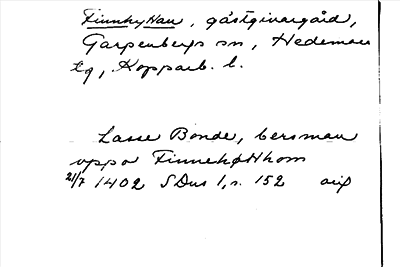 Finnhyttan, gästgivargård,
Garpenbergs sn, Hedemora
tg, Kopparb. l.
Lasse Bonde, bersman
uppa Finnehøtthom
21/7 1402 SDns 1, s. 152